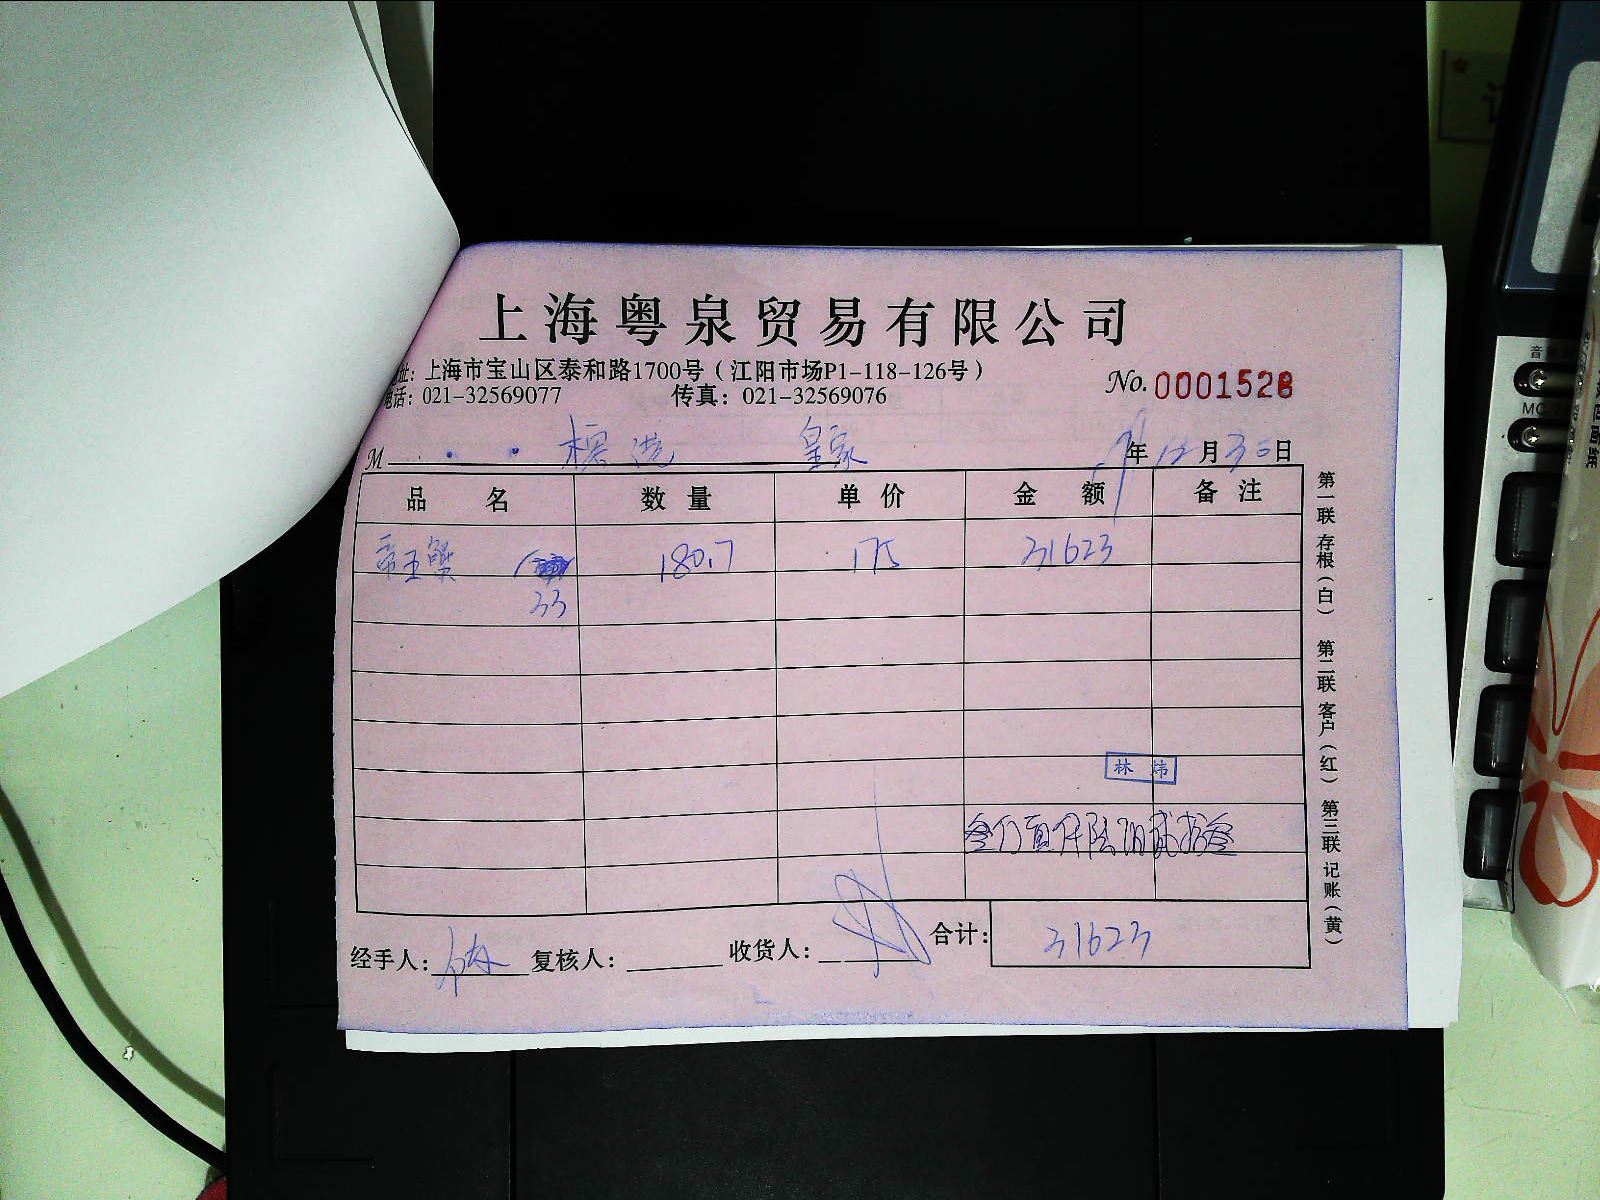 上海粤泉贸易有限公司
址：上海市宝山区泰和路1700号（江阳市场P1-118-126号）
电话：021-32569077 传真：021-32569076
No. 0001528
M 皇家 年12月30日
品名 数量 单价 金额 备注
帝王蟹 180.7 175 31623
33
林炜
叁万壹仟陆佰贰拾叁
经手人： 复核人： 收货人： 合计： 31623
第一联 存根（白） 第二联 客户（红） 第三联 记账（黄）